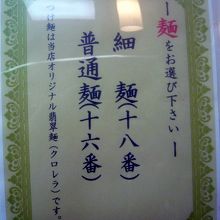 ー麺をお選び下さいー
細 麺(十八番)
普通麺(十六番)
つけ麺は当店オリジナル翡翠麺(クロレラ)です。